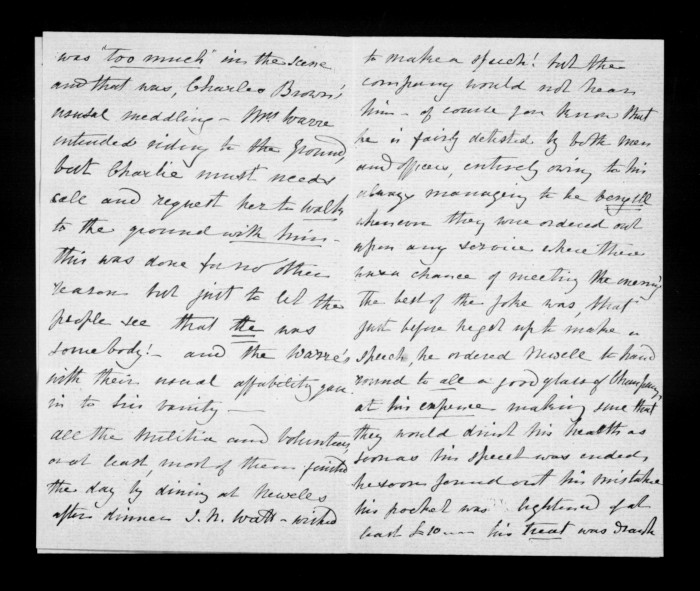 was "too much" in the scene
and that was, Charles Brown's
usual meddling - Mrs Warre
intended riding to the ground,
but Charlie must needs
call and request her to walk
to the ground with him -
this was done for no other
reason but just to let the
people see that he was
somebody! - and the Warre's
with their usual affability gave
in to his vanity -
All the Militia and Volunteers,
or at least, most of them finished
the day by dining at Newells
after dinner I. N. Watt - wished
to make a speech! but the
company would not hear
him - of course you know that
he is fairly detested by both men
and officers, entirely owing to his
always managing to be very ill
whenever they were ordered out
upon any service where there
was a chance of meeting the enemy
the best of the joke was, that
just before he got up to make a
speech, he ordered Newell to hand
round to all a good glass of Champagne,
at his expense making sure that
they would drink his health as
soon as his speech was ended,
he soon found out his mistake
his pocket was lightened of at
least £10 his treat was drank